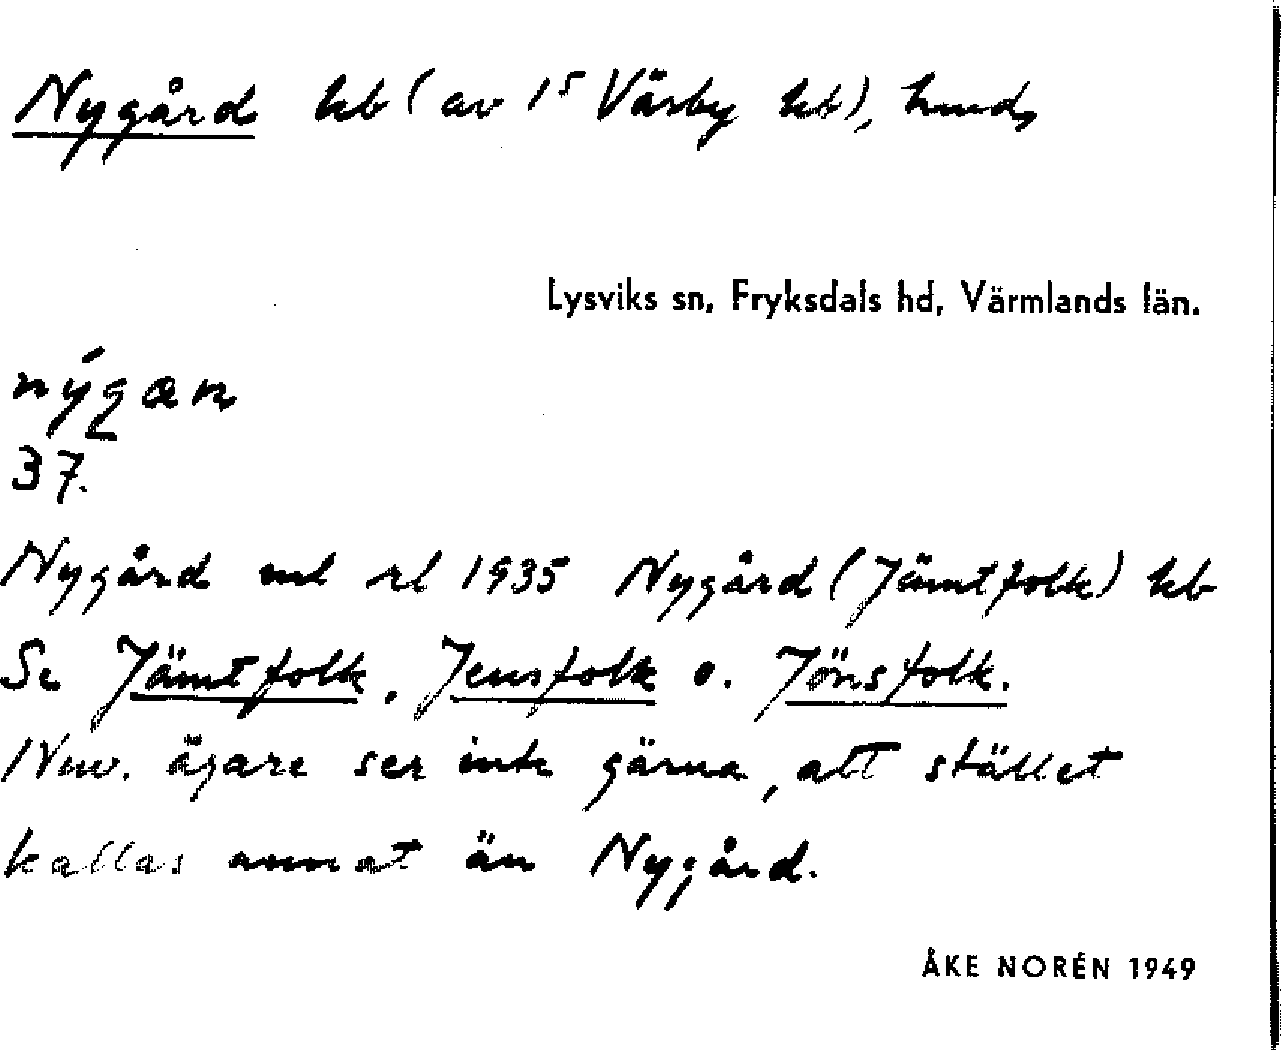 Nygård hb (av 1⁵ Väsby hb), hmd,
Lysviks sn, Fryksdals hd, Värmlands län.
nýgaɳ
37.
Nygård enl rl 1935 Nygård (Jämtfolk) hb
Se Jämtfolk, Jensfolk o. Jönsfolk.
Nuv. ägare ser inte gärna, att stället
kallas annat än Nygård.
ÅKE NORÉN 1949